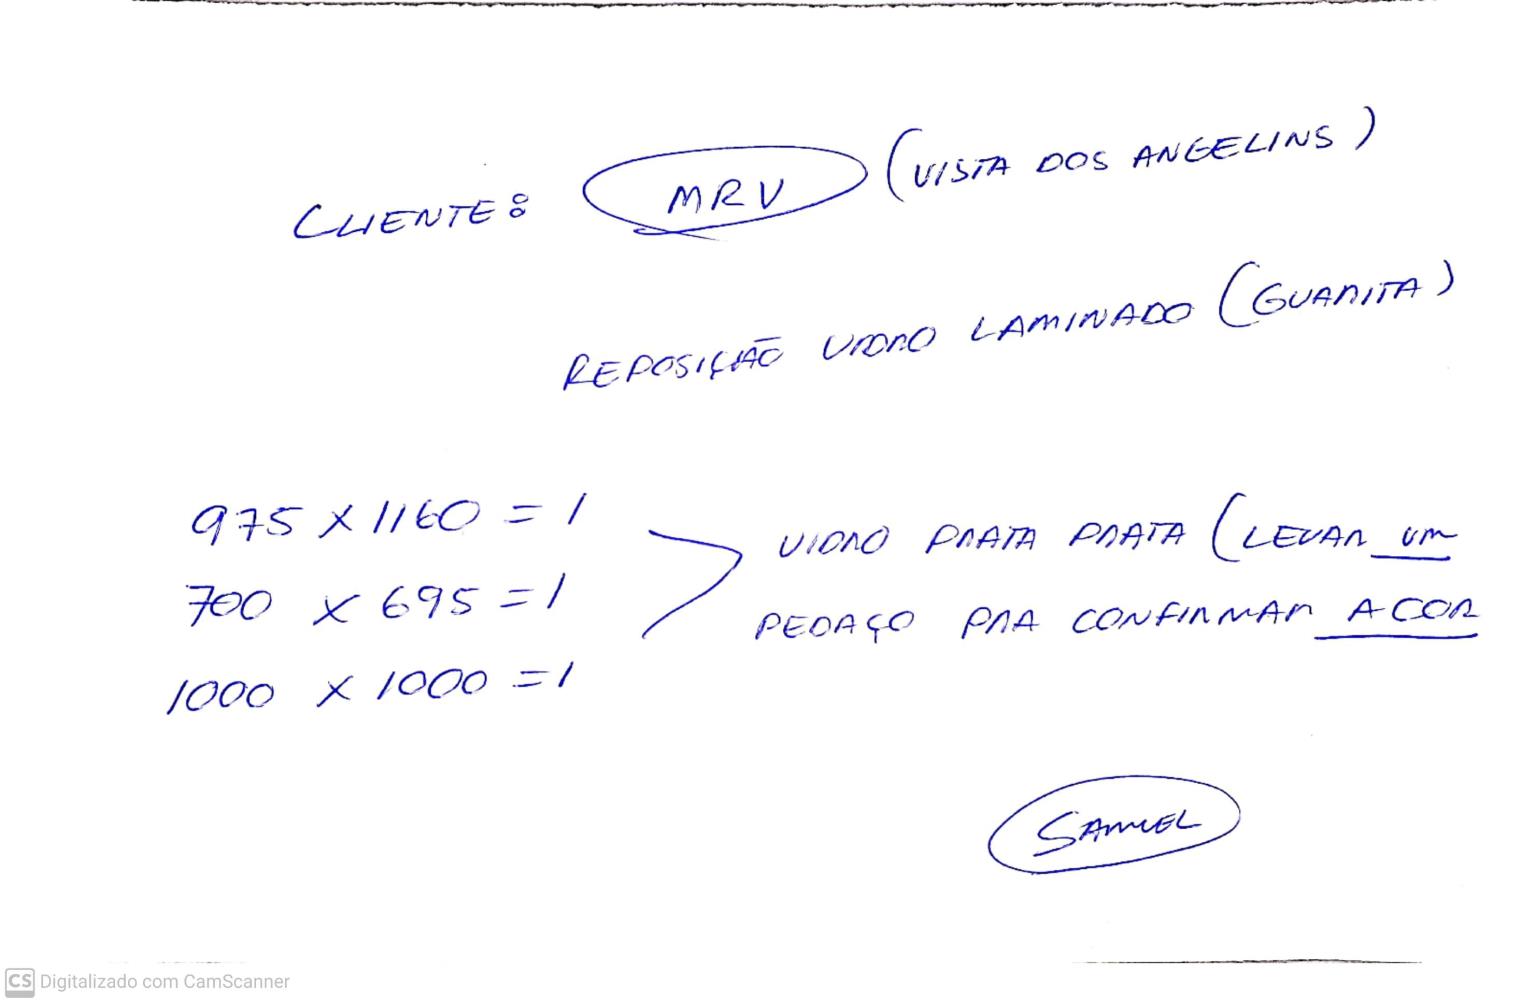 CLIENTE: MRV (VISTA DOS ANGELINS)
REPOSIÇÃO VIDRO LAMINADO (GUARITA)
975 x 1160 = 1
700 x 695 = 1
1000 x 1000 = 1
VIDRO PRATA PRATA (LEVAR UM
PEDAÇO PRA CONFIRMAR A COR
SAMUEL
CS Digitalizado com CamScanner